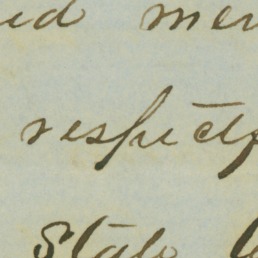 ed mer
respectf
State